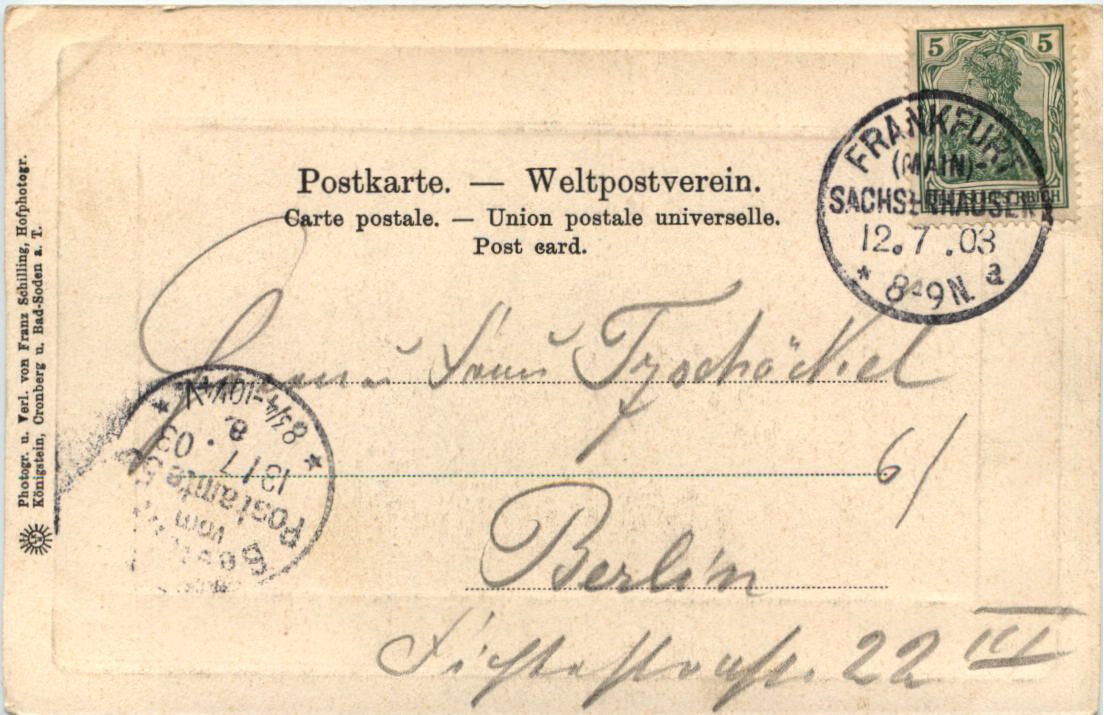 Postkarte. — Weltpostverein.
Carte postale. — Union postale universelle.
Post card.
5 5
FRANKFURT
(MAIN)-
SACHSENHAUSEN
12.7.03
* 8-9N. a
Photogr. u. Verl. von Franz Schilling, Hofphotogr.
Königstein, Cronberg u. Bad-Soden a. T.
Tzschöckel
Berlin
Fichtestraße 22 III
vom
Postamte
13/7 03
8¾-10¼V